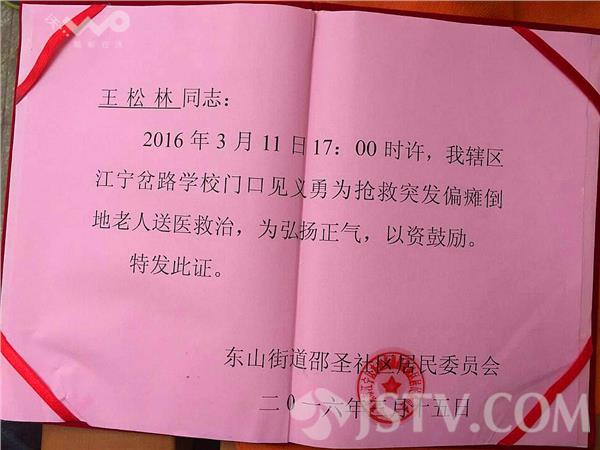 王松林同志：
2016年3月11日17：00时许，我辖区
江宁岔路学校门口见义勇为抢救突发偏瘫倒
地老人送医救治，为弘扬正气，以资鼓励。
特发此证。
东山街道邵圣社区居民委员会
二〇一六年三月十五日
JSTV.COM